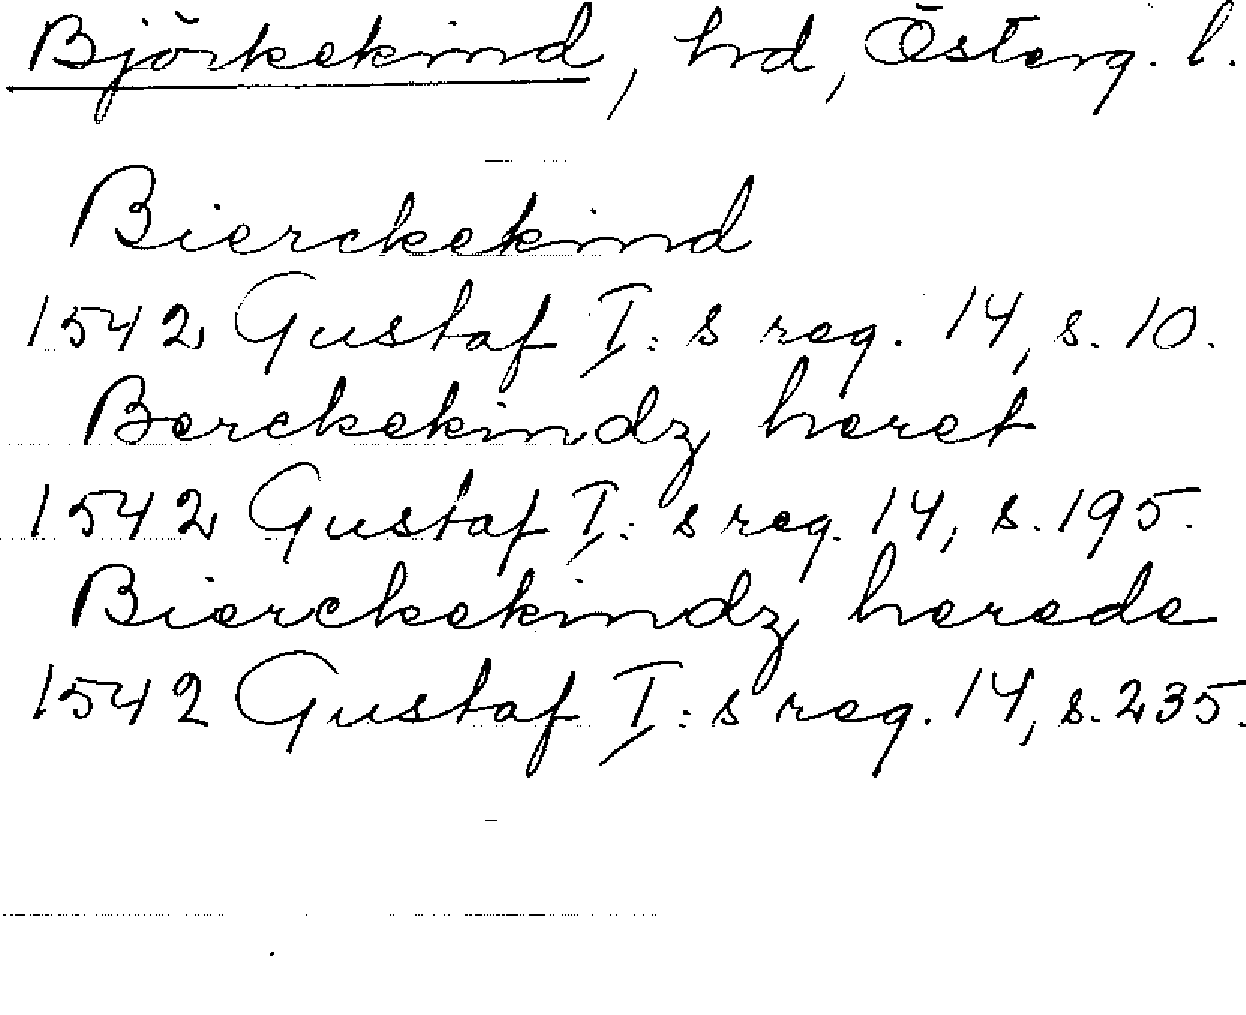 Björkekind, hd, Österg. l.
Bierckekind
1542 Gustaf I:s reg. 14, s. 10.
Berckekindz heret
1542 Gustaf I:s reg. 14, s. 195.
Bierckekindz herede
1542 Gustaf I:s reg. 14, s. 235.